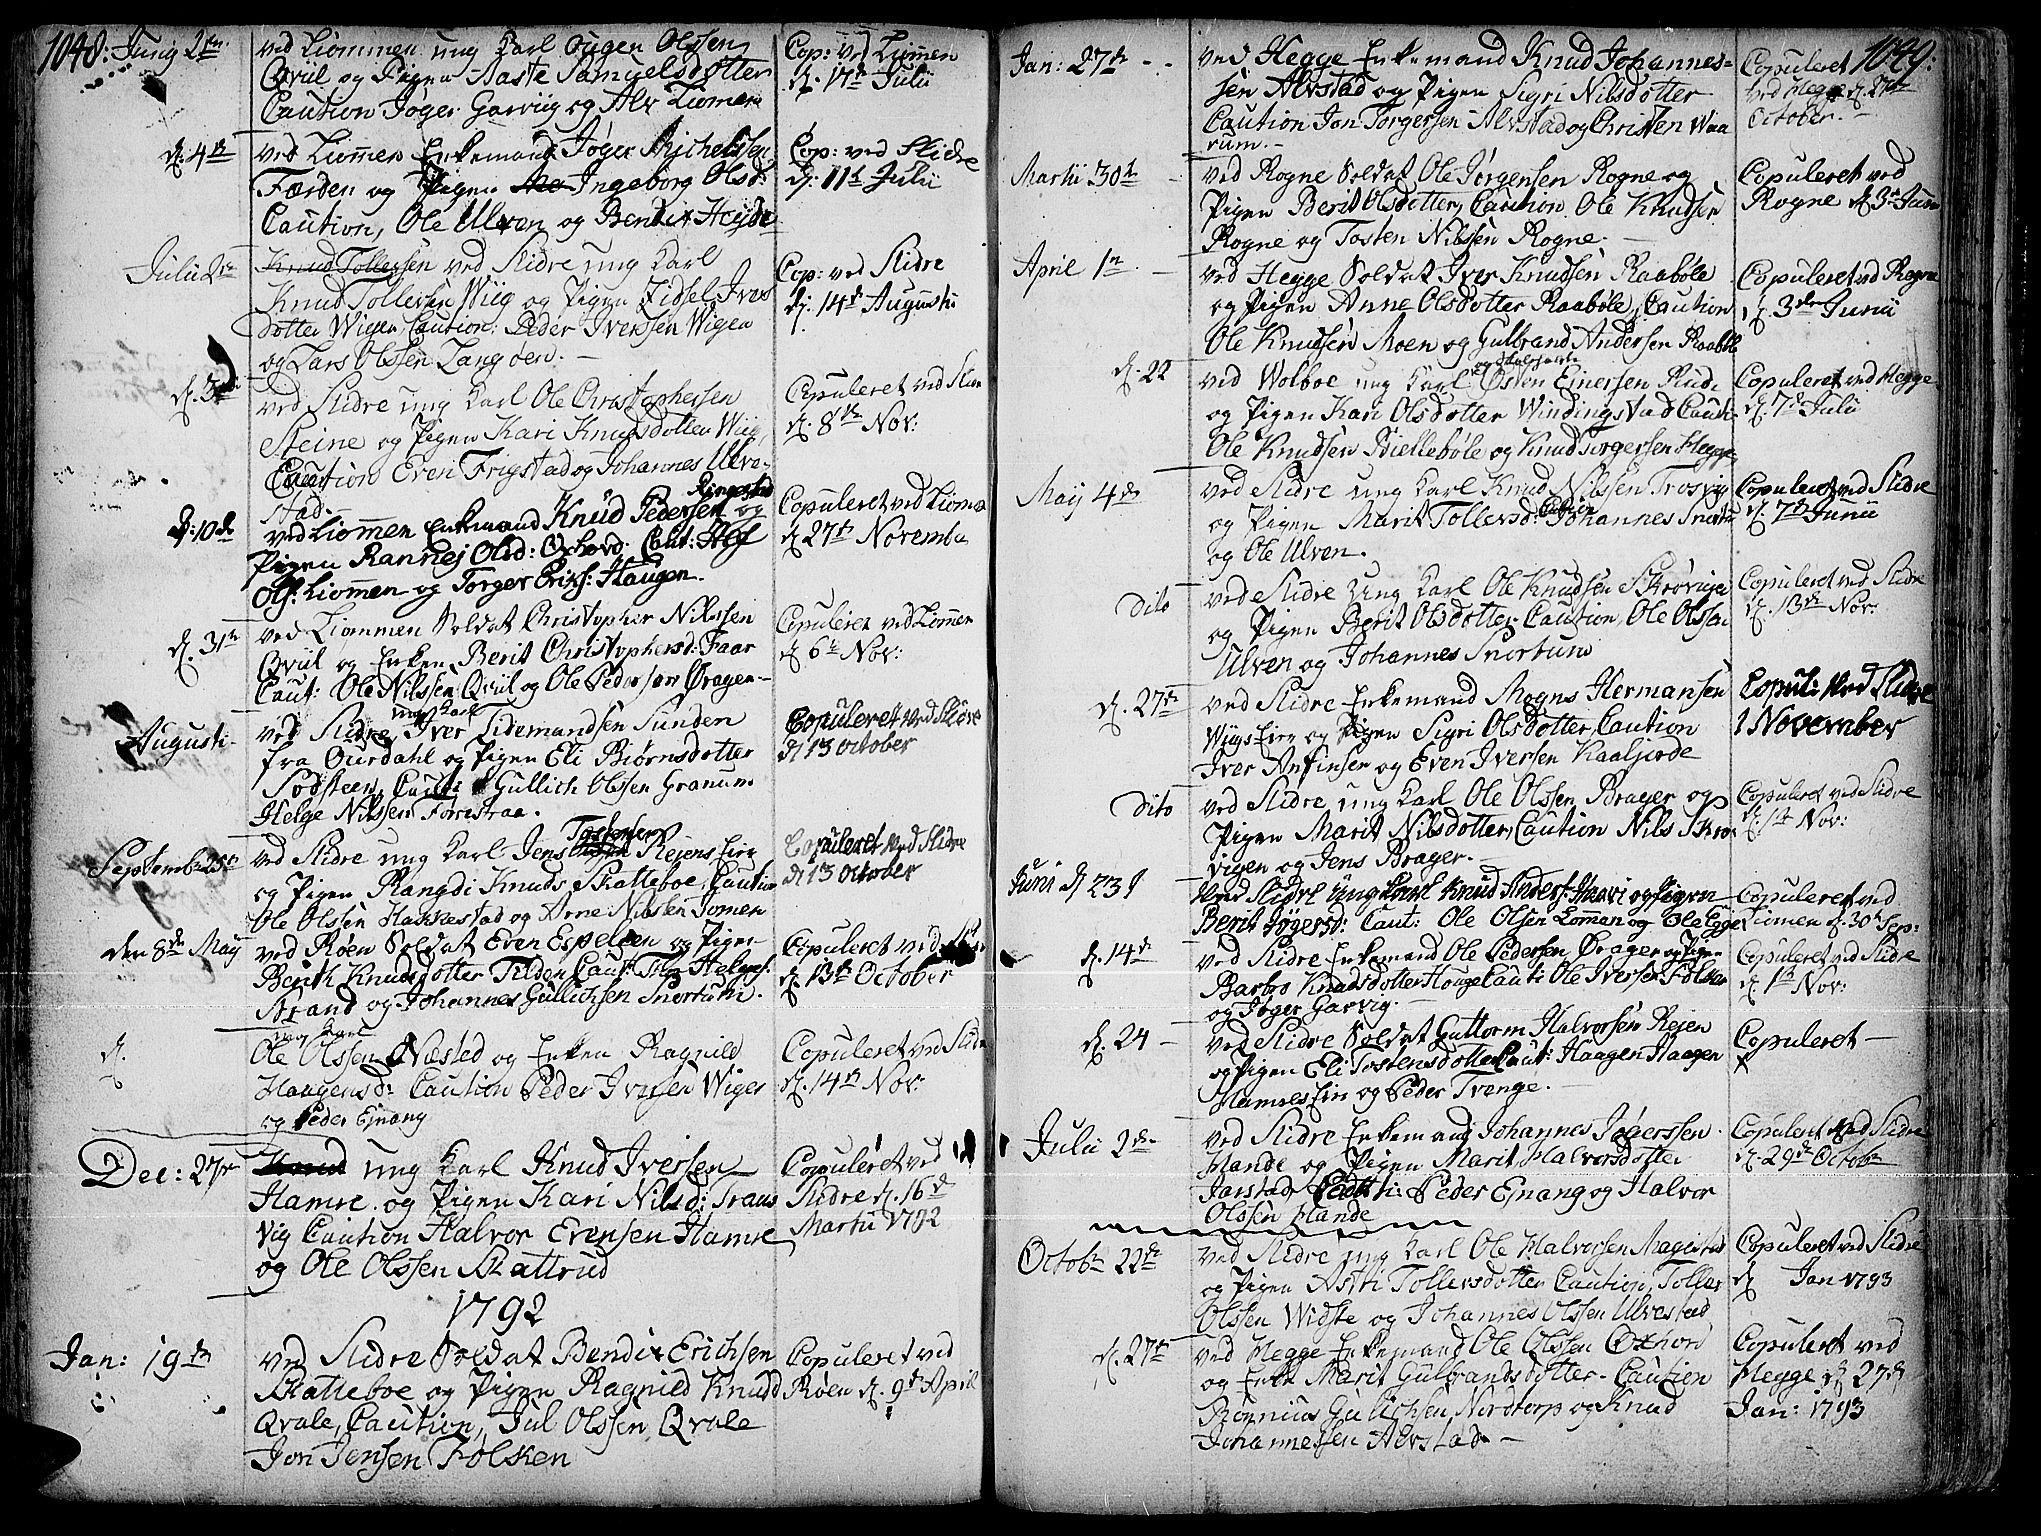 1048:
Junij 2den ved Liommen ung Karl Ougen Olssen Cop: ved Liomen
Qviil og Pigen Aaste Samuelsdotter d. 17de Julii
Caution Joger Garviig og Alv Liomen
d. 4de ved Liommen Enkemand Jøger Michelssen Cop: ved Slidre
Færden og Pigen Ingeborg Olsd: d. 11te Julii
Caution, Ole Ulven og Bendix Heyde
Julii 2den Knud Tollefsen ved Slidre ung Karl Cop: ved Slidre
Knud Tollefsen Wiig og Pigen Zidsel Ivers d. 14de Augustii
dotter Wigen Caution: Peder Iverssen Wigen
og Lars Olssen Langøen. —
d. 3de ved Slidre ung Karl Ole Christophersen Copuleret ved Slidre
Steine og Pigen Kari Knudsdotter Wiig, d. 8de Nov:
Caution Even Frigstad og Johannes Ulve-
stad. — Ringestad
d: 10de ved Liomen Enkemand Knud Pedersen og Copuleret ved Liomen
Pigen Rannej Olsd: Oxhovd: Caut: Alf d. 27de November
Ols: Liommen og Torger Eriks: Haugen.
d. 31te ved Liommen Soldat Christopher Nilssen Copuleret ved Lommen
Qviil og Enken Berit Christophersd: Faar d. 6te Nov:
Caut: Ole Nilssen Qviil og Ole Pederssen Øragen-
ung Karl
Augusti- ved Slidre Iver Tidemandsen Sunden Copuleret ved Slidre
fra Ourdahl og Pigen Eli Biørnsdotter d 13 October
Sodsteen, Caut: Gullich Olssen Granum
Helge Nilssen Forestraa.
Tostensen
Septemb: 25de ved Slidre ung Karl Jens Rejens Eire Copuleret ved Slidre
og Pigen Rangdi Knuds Skatteboe, Caution d 13 October
Ole Olssen Hakkestad og Arne Nilssen Jomen
den 8de Maij ved Røen Soldat Even Espelien og Pigen Copuleret ved
Berith Knudsdotter Tilden Caut: Helges: d. 13de October
Strand og Johannes Gullichsen Snortum.
ung Karl
d. Ole Olssen Næsted og Enken Ragnild Copuleret ved Slidre
Haagensd: Caution Peder Iversen Wigen d. 14de Nov:
og Peder Ejnang
Dec: 27de ung Karl Knud Iverssen Copuleret ved
Hamre og Pigen Kari Nilsd: Traas Slidre d. 16de
vig Caution Halvor Evensen Hamre Martii 1792
og Ole Olssen Skattrud
1792
Jan: 19de ved Slidre Soldat Bendix Erichsen Copuleret ved
Skatteboe og Pigen Ragnild Knudsd Røen d. 9de April
Qvale, Caution, Jul Olssen Qvale
Jon Jensen Folsken
1049:
Jan: 27de - - ved Hegge Enkemand Knud Johannes- Copuleret
sen Alvstad og Pigen Sigri Nilsdotter ved Hegge d. 27de
Caution Jon Torgersen Alvstad og Christen Waa October. —
rum. —
Martii 30te ved Rogne Soldat Ole Jørgensen Rogne og Copuleret ved
Pigen Berit Olsdotter, Caution Ole Knudsen Rogne d. 3de Junii
Rogne og Tosten Nilssen Rogne. —
April 1ten — ved Hegge Soldat Iver Knudsen Raabøle Copuleret ved Rogne
og Pigen Anne Olsdotter Raabøle, Caution d. 3de Junii
Ole Knudsen Moen og Gulbrand Andersen Raabøle
d. 22 ved Wolboe ung Karl Østen Einersen Rude Copuleret ved Hegge
og Pigen Kari Olsdotter Windingstad Caut: d. 7de Julii
Ole Knudsen Biellebøle og Knud Torgersen Hegge
Maij 4de ved Slidre ung Karl Knud Nilssen Trosvig Copuleret ved Slidre
og Pigen Marit Tollefsd: Caution Johannes Snortum d. 7de Junii
og Ole Ulven.
dito ved Slidre ung Karl Ole Knudsen Skrøvigen Copuleret ved Slidre
og Pigen Berit Olsdotter Caution, Ole Olssen d. 13de Nov:
Ulven og Johannes Snortum
d. 27de ved Slidre Enkemand Mogns Hermansen Copul: ved Slidre
Wiigs Eier og Pigen Sigri Olsdotter, Caution 1 November
Iver Anfinsen og Even Iversen Kaalfiorde
dito ved Slidre ung Karl Ole Olssen Brager og Copuleret ved Slidre
Pigen Marit Nilsdotter, Caution Nils Skrø- d. 1te Nov:
vigen og Jens Brager. —
Juni d 23de ved Slidre Ung Karl Knud Anders: Haavi og Pigen Copuleret ved
Berit Jøgersd: Caut: Ole Olsen Lomman og Ole Egge Liomen d. 30te Sep:
d. 14de ved Slidre Enkemand Ole Pedersen Ørager og Pigen Copuleret ved Slidre
Barbro Knudsdotter Houge Caut: Ole Iversen Folsken d. 1te Nov:
og Jøger Garvig. —
d. 24 — ved Slidre Soldat Guttorm Halvorsen Rejen Copuleret —
og Pigen Eli Tostensdotter Caut: Haagen Haagen
Hamres Eier og Peder Trenge. —
Julii 2den ved Slidre Enkemand Johannes Jøgerssen Copuleret ved Slidre
Hande og Pigen Marit Halvorsdotter d. 29de Octobr
Jarstad, Peder Ejnang og Halvor
Olssen Hande
Octobr 22de ved Slidre ung Karl Ole Halvorsen Magistad Copuleret ved Slidre
og Pigen Asti Tollefsdotter Caution, Tollef d. Jan 1793
Olssen Widste og Johannes Olssen Ulvestad
d. 27de ved Hegge Enkemand Ole Olssen Oxhovd Copuleret ved
og Enke Marit Gulbrandsdotter. Caution Hegge d 27de
Rønnius Gulichsen Nordtorp og Knud Jan: 1793
Johannessen Alvstad. —